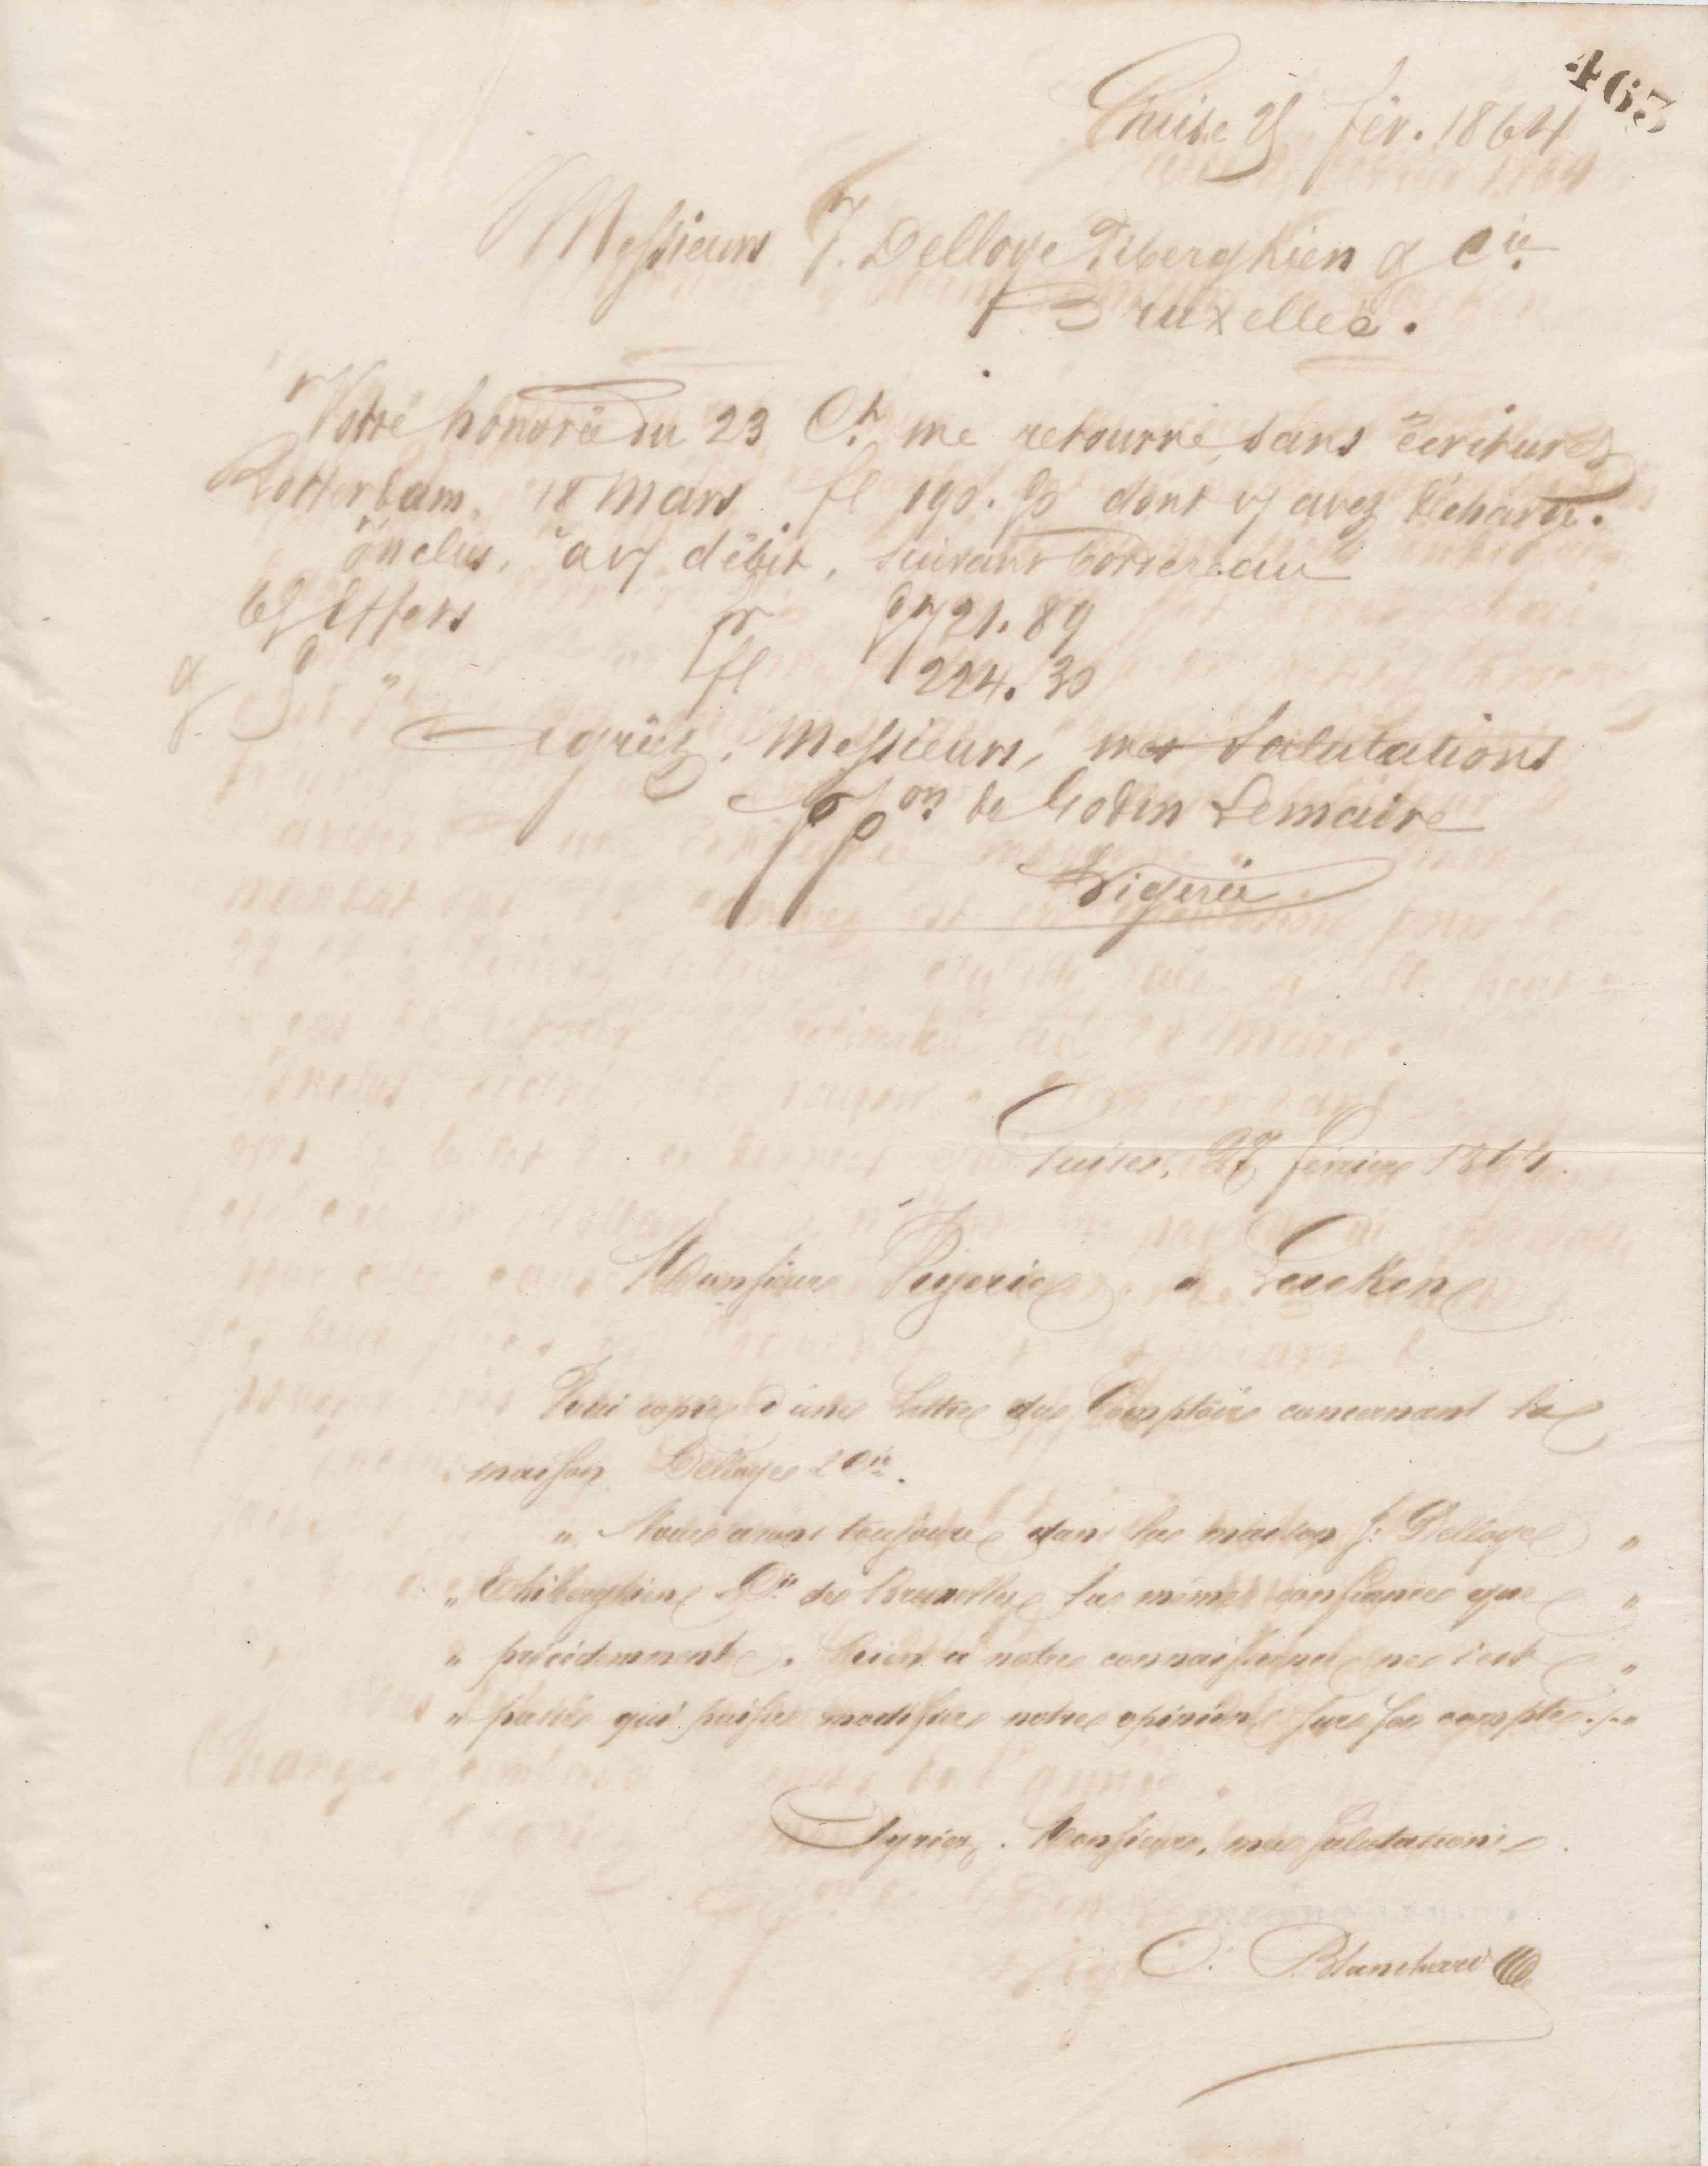 463
Guise 25 fév. 1864
Messieurs F. Delloye Tiberghien & Cie
Bruxelles.
Votre honorée du 23 Ct me retourne, sans écritures
Rotterdam, 18 Mars fl 190.90 dont v/ avez décharge.
Inclus, à v/ débit, suivant bordereau
effets fr 21.89
& " fl 224.30
Agréez, Messieurs, mes Salutations
ppon de Godin Lemaire
Guise, 27 février 1864.
Monsieur à Laeken
Voici copie d'une lettre du Comptoir concernant la
maison Delloye & Cie.
" Nous avons toujours dans la maison F. Delloye "
" Thiberghien & Cie de Bruxelles la même confiance que "
" précédemment. Rien à notre connaissance ne s'est "
" passé qui puisse modifier notre opinion sur son compte. "
Agréez, Monsieur, mes salutations.